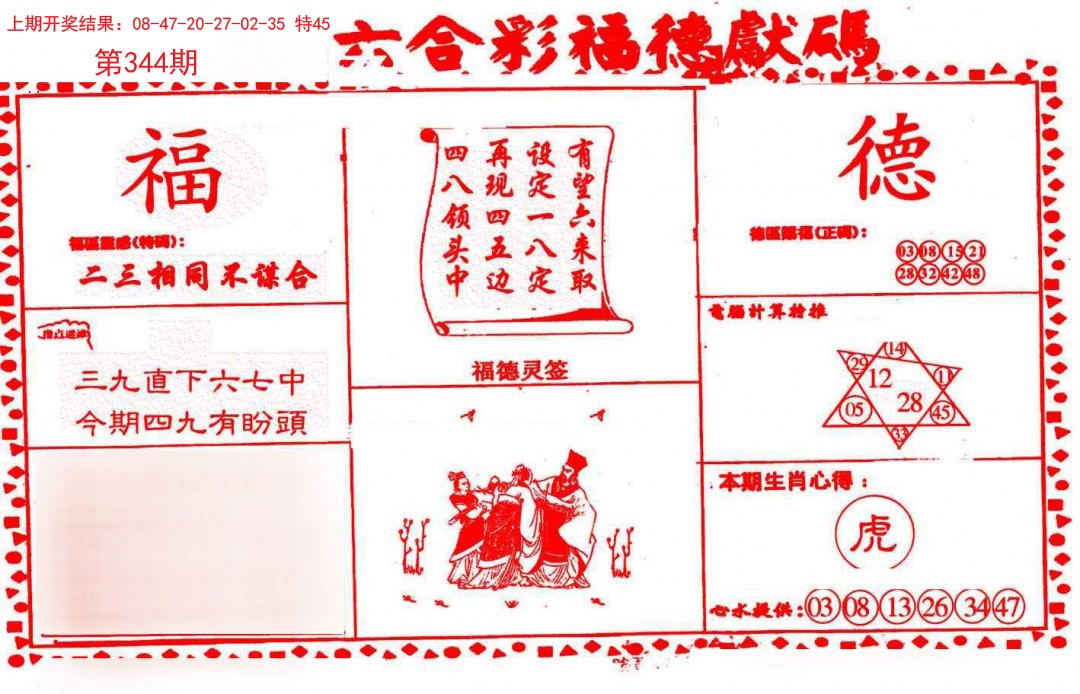 上期开奖结果：08-47-20-27-02-35 特45
第344期
六合彩福德獻碼
福
福區靈感(特碼)：
二三相同不谋合
指点迷津
三九直下六七中
今期四九有盼頭
有望六来取
设定一八定
再现四五边
四八领头中
福德灵签
德
德區賜福(正碼)：
03 08 15 21
28 32 42 48
電腦計算恰推
14
29
12
05
28
45
33
本期生肖心得：
虎
心水提供：03 08 13 26 34 47